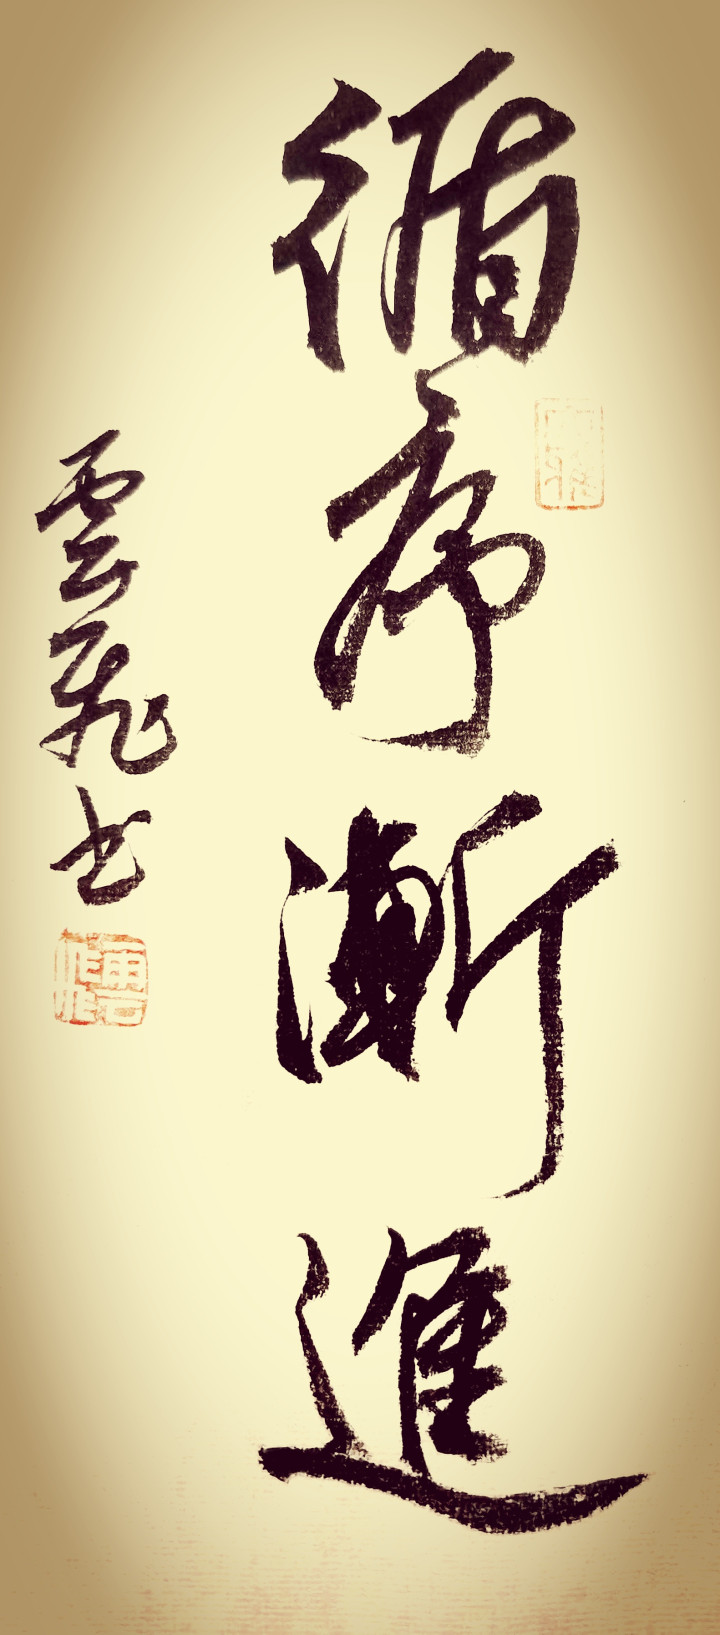 循序漸進
雲飛书